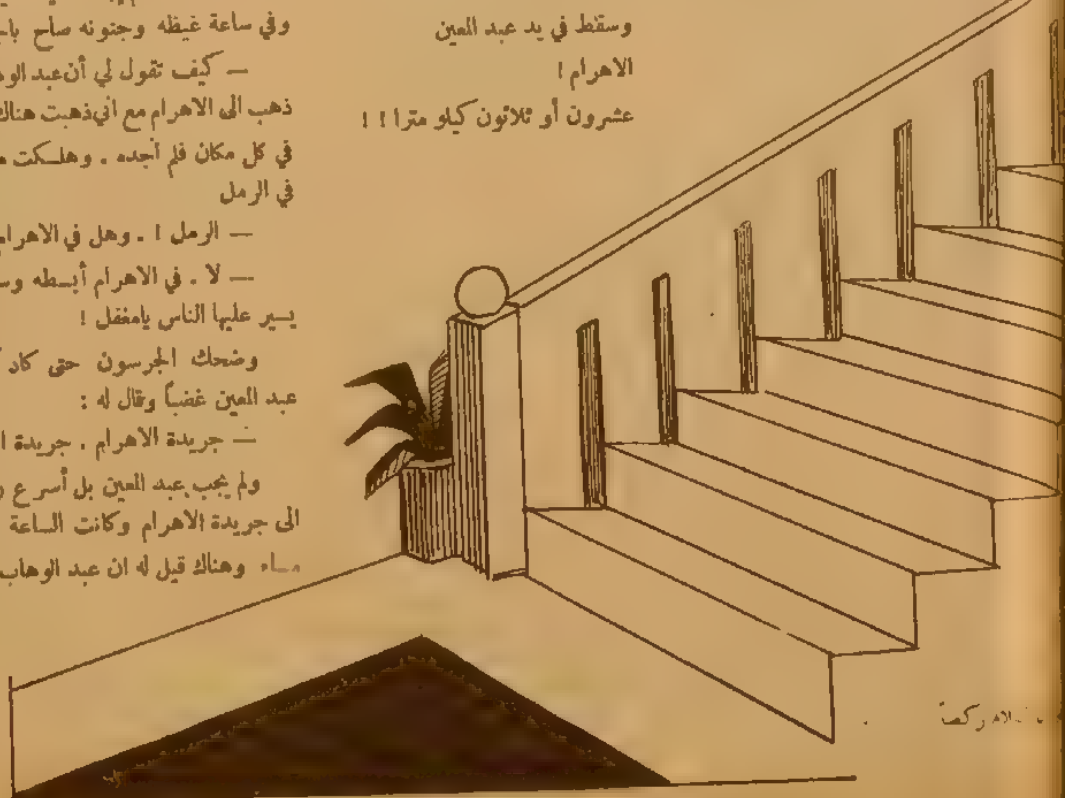 وسقط في يد عبد المعين
الاهرام !
عشرون أو ثلاثون كيلو مترا ! !
وفي ساعة غيظه وجنونه صاح
— كيف تقول لي أن عبد
ذهب الى الاهرام مع اني ذهبت هناك
في كل مكان فلم أجده . وهلكت
في الرمل
— الرمل ! . وهل في الاهرام
— لا . في الاهرام أبسطه
يسير عليها الناس يامغفل !
وضحك الجرسون حتى كاد
عبد المعين غضباً وقال له :
— جريدة الاهرام . جريدة
ولم يجب عبد المعين بل أسرع
الى جريدة الاهرام وكانت الساعة
مساء وهناك قيل له ان عبد الوهاب
ركضاً